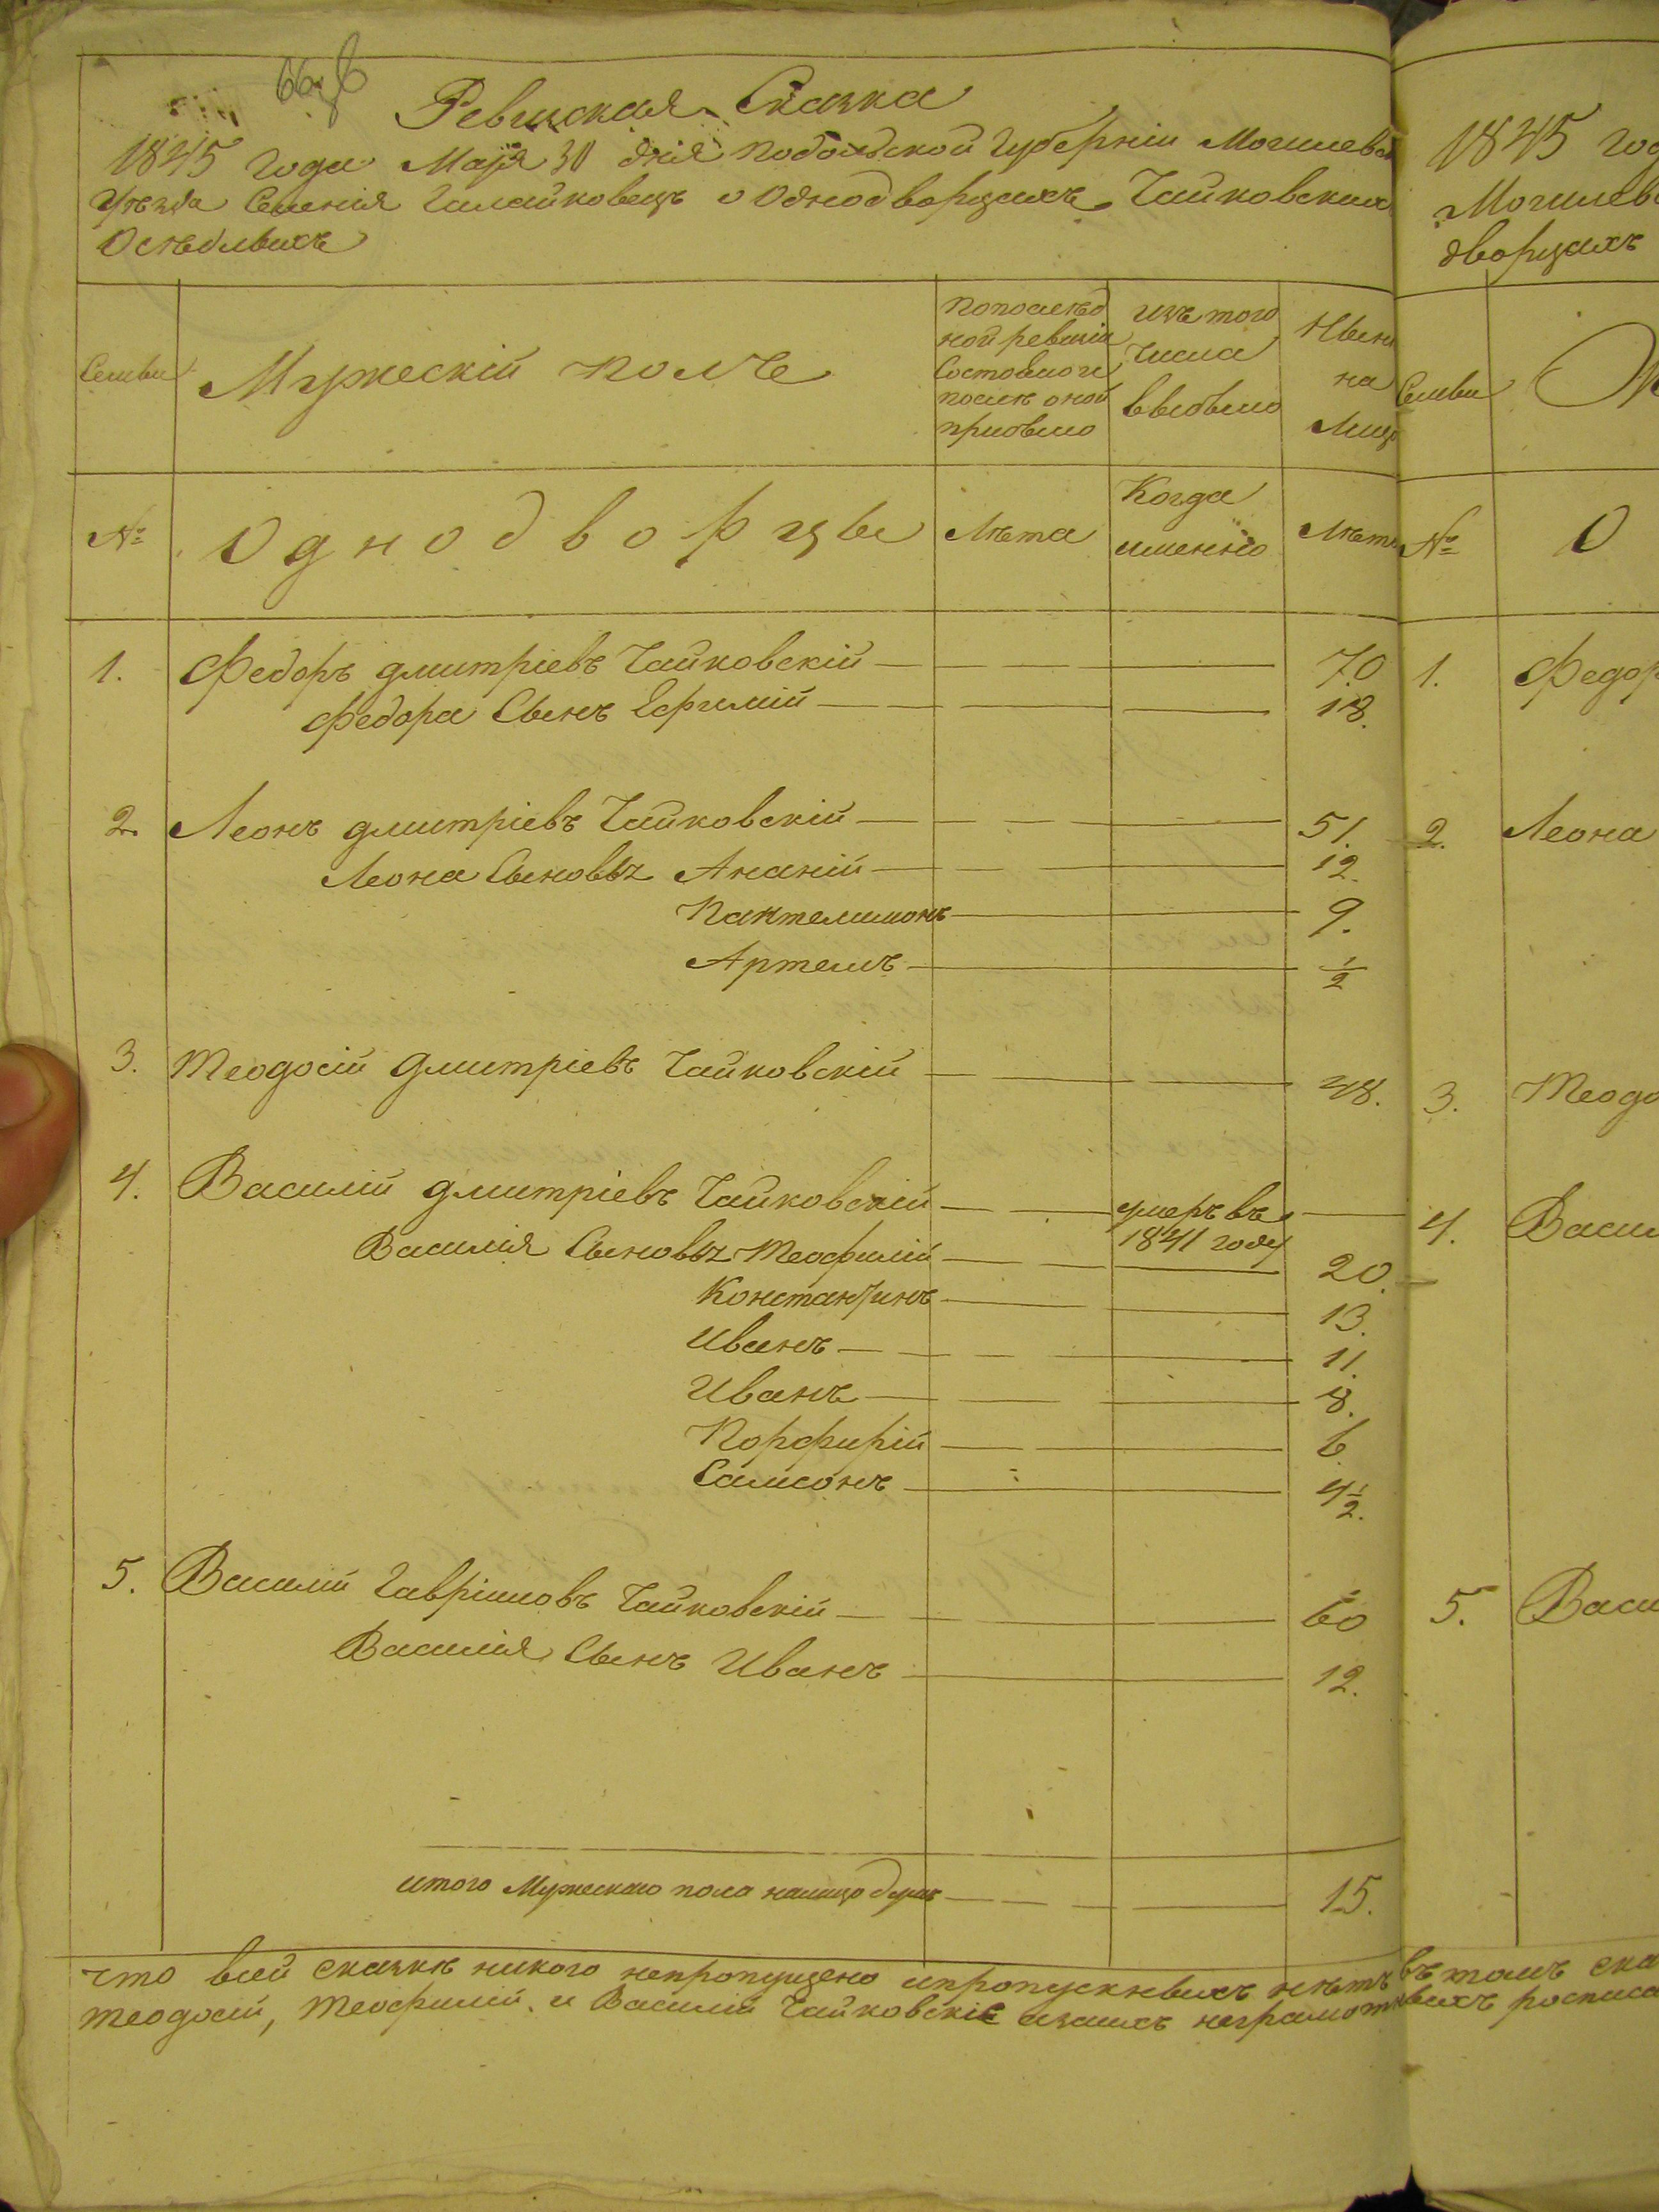 Ревизская Сказка
1845 года Маія 30 дня Подольской Губерніи Могилевск
Уезда Селенія Галайковецъ о Однодворцахъ Чайковских
Оседлыхъ
Семьи
Мужескій полъ
по послед
ной ревизіи
Состояло и
после оной
прибыло
изъ того
числа
выбыло
Ныне
на
Лицо
№
Однодворцы
Лета
Когда
именно
Лета
1. Федоръ Дмитріевъ Чайковскій 70
Федора Сынъ Ефимій 18.
2. Леонъ Дмитріевъ Чайковскій 51.
Леона Сыновья Ананій 12.
Пантелимонъ 9.
Артемъ ½
3. Теодосій Дмитріевъ Чайковскій 48.
4. Василій Дмитріевъ Чайковскій умеръ въ
1841 году
Василія Сыновья Теофилій 20.
Константинъ 13.
Иванъ 11.
Иванъ 8.
Порфирій 6
Самсонъ 4½.
5. Василій Гавріиловъ Чайковскій 60
Василія Сынъ Иванъ 12.
итого Мужескаго пола налицо душъ 15.
что в сей сказке никого непропущено и пропускныхъ нетъ въ томъ ска
Теодосій, Теофилій и Василій Чайковскіе а за ихъ неграмотныхъ росписа
1845 год
Могилевс
дворцахъ
Семьи
М
№
О
1. Федор
2. Леона
3. Теодо
4. Васи
5. Васи